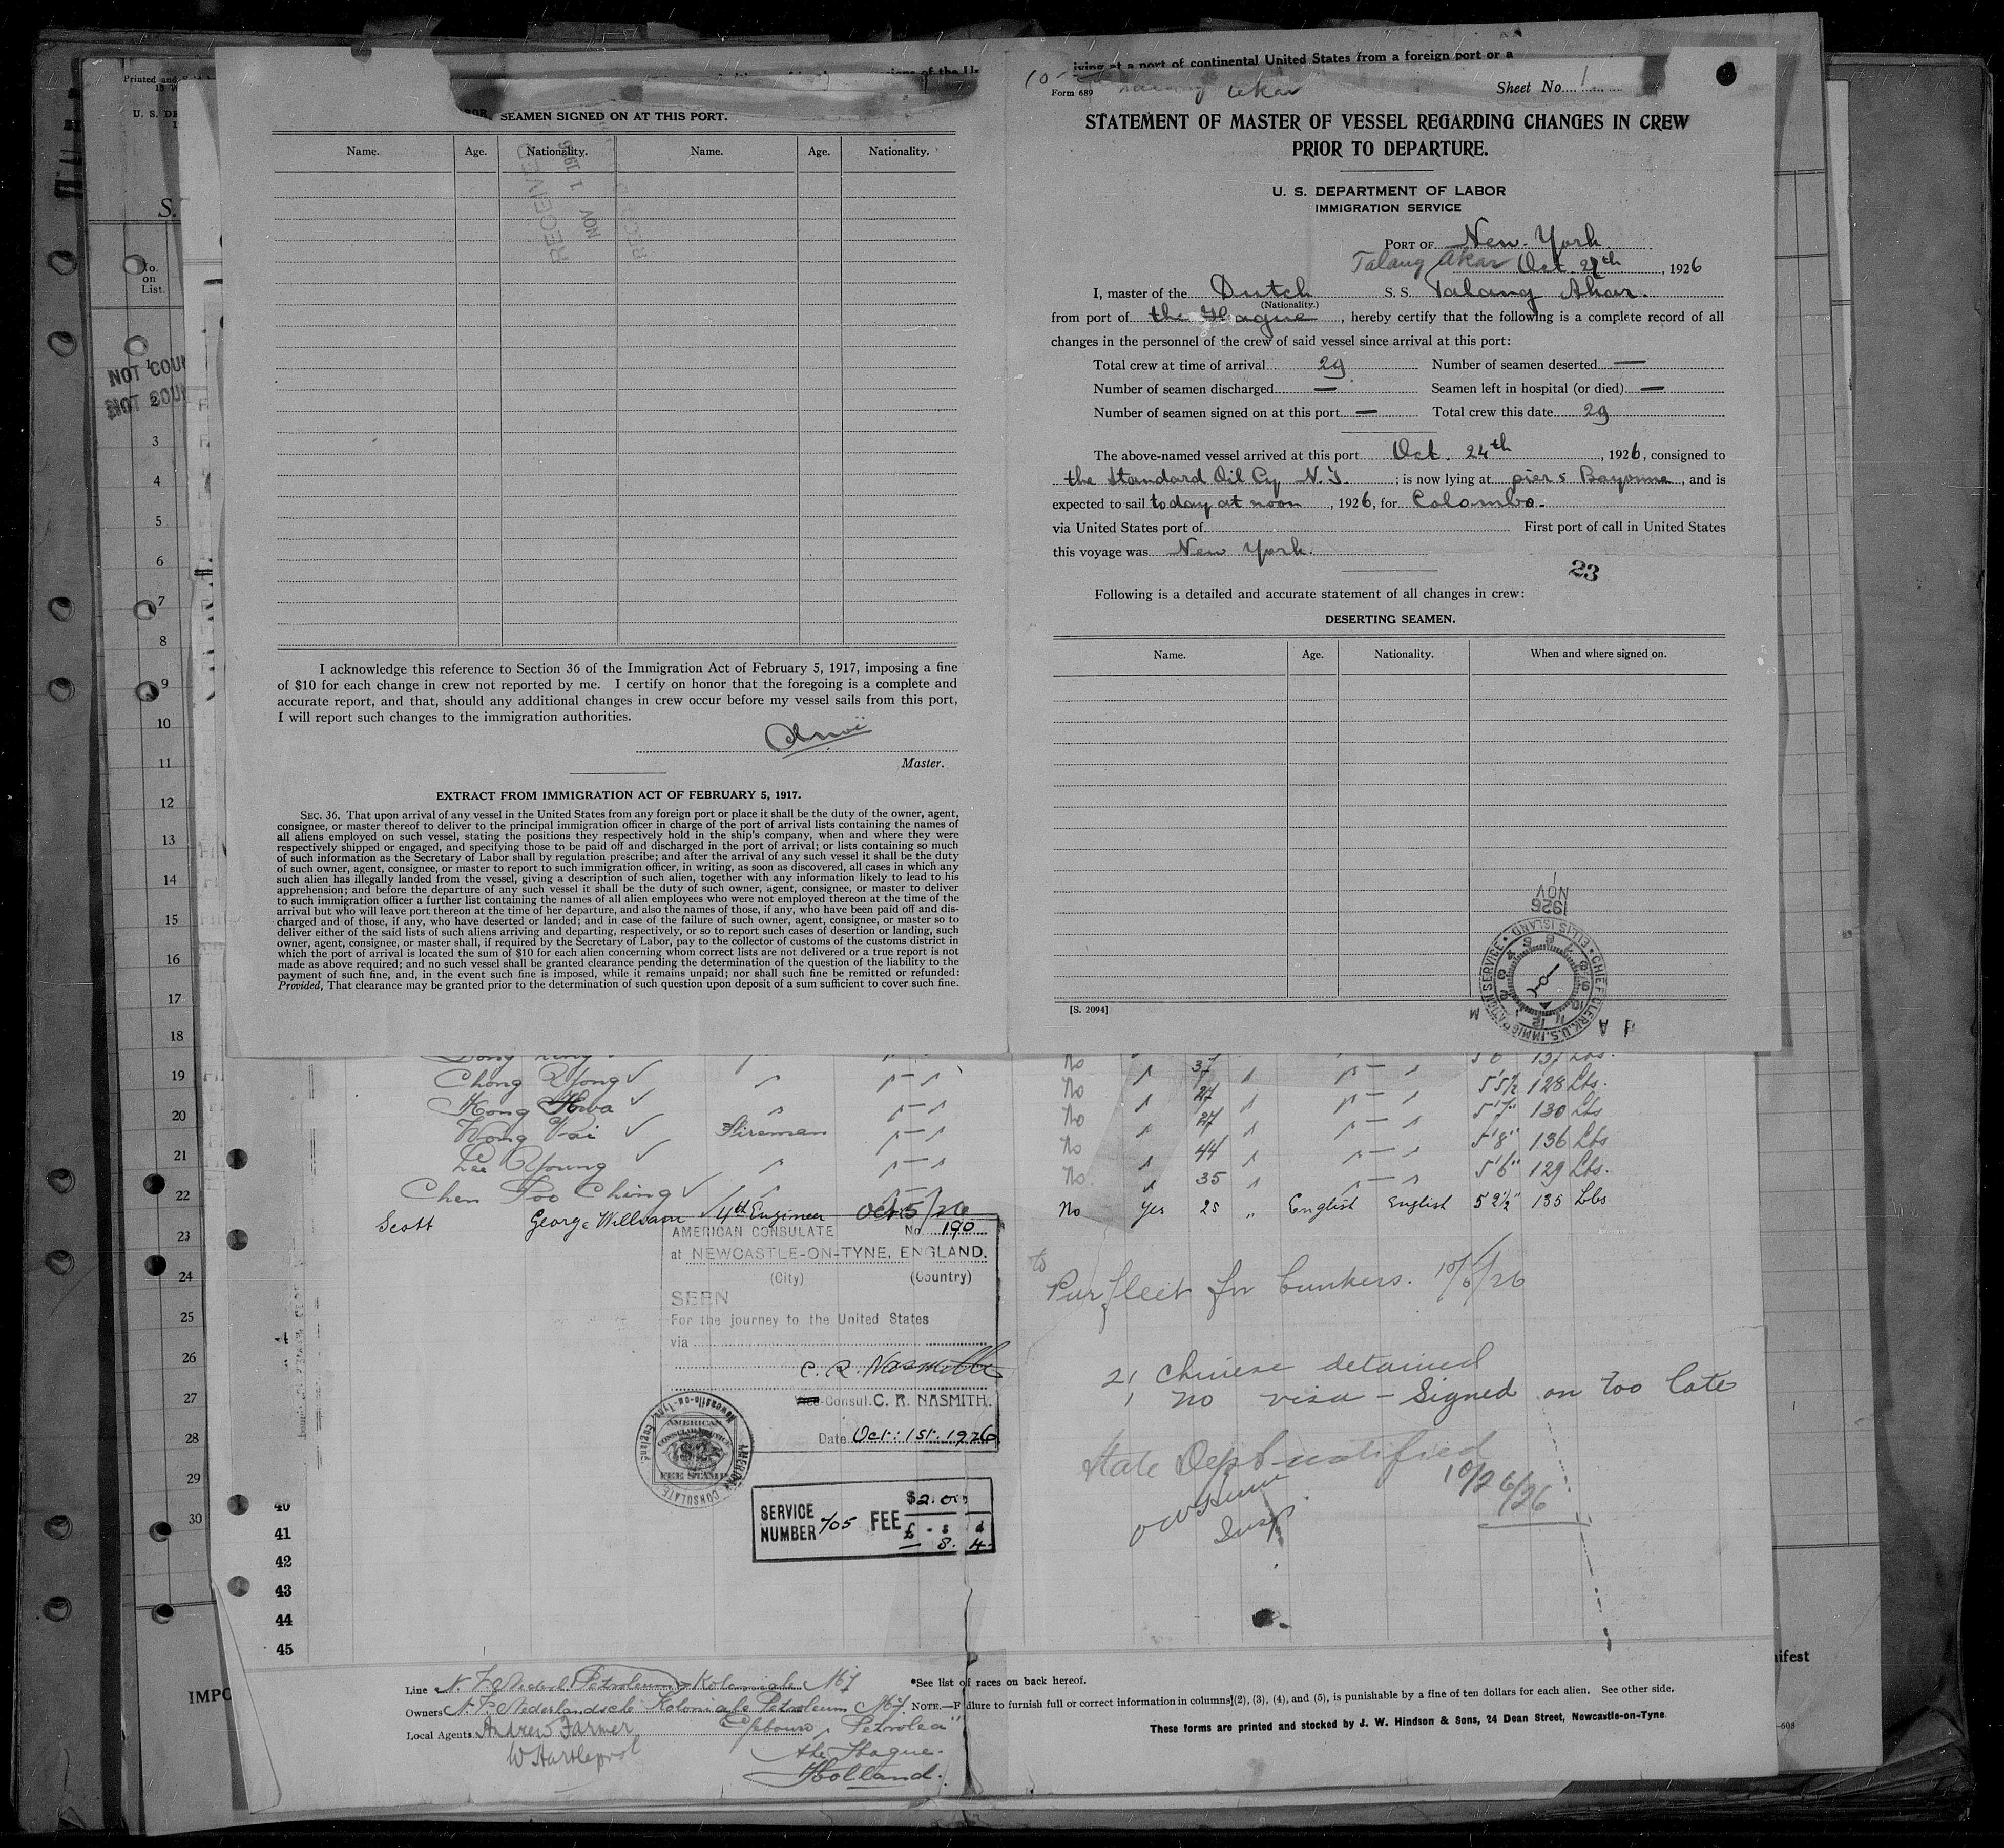 SEAMEN SIGNED ON AT THIS PORT.
Name. Age. Nationality. Name. Age. Nationality.
RECEIVED
NOV 1 1926
I acknowledge this reference to Section 36 of the Immigration Act of February 5, 1917, imposing a fine
of $10 for each change in crew not reported by me. I certify on honor that the foregoing is a complete and
accurate report, and that, should any additional changes in crew occur before my vessel sails from this port,
I will report such changes to the immigration authorities.
Master.
EXTRACT FROM IMMIGRATION ACT OF FEBRUARY 5, 1917.
SEC. 36. That upon arrival of any vessel in the United States from any foreign port or place it shall be the duty of the owner, agent,
consignee, or master thereof to deliver to the principal immigration officer in charge of the port of arrival lists containing the names of
all aliens employed on such vessel, stating the positions they respectively hold in the ship's company, when and where they were
respectively shipped or engaged, and specifying those to be paid off and discharged in the port of arrival; or lists containing so much
of such information as the Secretary of Labor shall by regulation prescribe; and after the arrival of any such vessel it shall be the duty
of such owner, agent, consignee, or master to report to such immigration officer, in writing, as soon as discovered, all cases in which any
such alien has illegally landed from the vessel, giving a description of such alien, together with any information likely to lead to his
apprehension; and before the departure of any such vessel it shall be the duty of such owner, agent, consignee, or master to deliver
to such immigration officer a further list containing the names of all alien employees who were not employed thereon at the time of the
arrival but who will leave port thereon at the time of her departure, and also the names of those, if any, who have been paid off and dis-
charged and of those, if any, who have deserted or landed; and in case of the failure of such owner, agent, consignee, or master so to
deliver either of the said lists of such aliens arriving and departing, respectively, or so to report such cases of desertion or landing, such
owner, agent, consignee, or master shall, if required by the Secretary of Labor, pay to the collector of customs of the customs district in
which the port of arrival is located the sum of $10 for each alien concerning whom correct lists are not delivered or a true report is not
made as above required; and no such vessel shall be granted clearance pending the determination of the question of the liability to the
payment of such fine, and, in the event such fine is imposed, while it remains unpaid; nor shall such fine be remitted or refunded:
Provided, That clearance may be granted prior to the determination of such question upon deposit of a sum sufficient to cover such fine.
at a port of continental United States from a foreign port or a
Form 689
Sheet No. 1
STATEMENT OF MASTER OF VESSEL REGARDING CHANGES IN CREW
PRIOR TO DEPARTURE.
U. S. DEPARTMENT OF LABOR
IMMIGRATION SERVICE
PORT OF New-York
Talang Akar Oct. 27th, 1926
I, master of the Dutch S. S. Talang Akar.
(Nationality.)
from port of the Hague, hereby certify that the following is a complete record of all
changes in the personnel of the crew of said vessel since arrival at this port:
Total crew at time of arrival 29 Number of seamen deserted —
Number of seamen discharged — Seamen left in hospital (or died) —
Number of seamen signed on at this port — Total crew this date 29
The above-named vessel arrived at this port Oct. 24th, 1926, consigned to
the Standard Oil Cy N.J.; is now lying at pier 5 Bayonne, and is
expected to sail today at noon, 1926, for Colombo.
via United States port of First port of call in United States
this voyage was New York.
23
Following is a detailed and accurate statement of all changes in crew:
DESERTING SEAMEN.
Name. Age. Nationality. When and where signed on.
1926
NOV
1
CHIEF CLERK, U.S. IMMIGRATION SERVICE • ELLIS ISLAND •
[S. 2094]
Printed and
U. S. DE
S.
No. on List.
NOT COU
NOT COU
1
2
3
4
5
6
7
8
9
10
11
12
13
14
15
16
17
18
19
20
21
22
23
24
25
26
27
28
29
30
No 37 137 Lbs.
Chong Yong No 27 5'5½ 128 Lbs.
Hong Hwa No 27 5'7" 130 Lbs
Wong Vai Fireman No 44 5'8" 136 Lbs
Lee Young No 35 5'6" 129 Lbs.
Chen Foo Ching
Scott George William 4th Engineer Oct 5/26 No Yes 25 " English English 5 2½" 135 Lbs
AMERICAN CONSULATE No 190
at NEWCASTLE-ON-TYNE, ENGLAND.
(City) (Country)
SEEN
For the journey to the United States
via
C. R. Nasmith
Vice-Consul. C. R. NASMITH.
Date Oct: 1st: 1926
AMERICAN CONSULATE Newcastle-on-Tyne, England.
AMERICAN CONSULAR SERVICE $2 FEE STAMP
SERVICE NUMBER 705 FEE $2.00
£ s d
- 8. 4.
to
Purfleet for bunkers. 10/6/26
21 Chinese detained
no visa - Signed on too late
State Dept notified
10/26/26
Insp
40
41
42
43
44
45
Line N. V. Nederl. Petroleum Koloniale Mij
Owners N. V. Nederlandsche Koloniale Petroleum Mij.
Local Agents Andrew Farmer
W Hartlepool
Gebouw "Petrolea"
the Hague.
Holland.
*See list of races on back hereof.
NOTE.—Failure to furnish full or correct information in columns (2), (3), (4), and (5), is punishable by a fine of ten dollars for each alien. See other side.
These forms are printed and stocked by J. W. Hindson & Sons, 24 Dean Street, Newcastle-on-Tyne
IMPO
ifest
-608